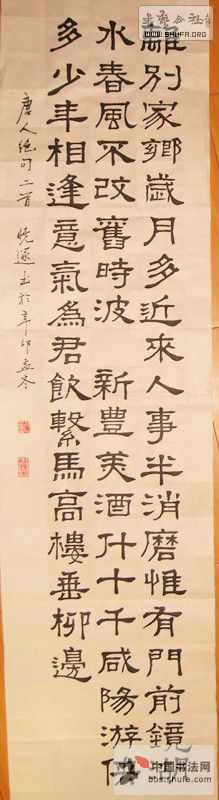 離別家鄉歲月多近來人事半消磨惟有門前鏡湖
水春風不改舊時波 新豊美酒什十千咸陽游俠
多少年相逢意氣為君飲繫馬高樓垂柳邊
唐人絕句二首 書於辛卯孟冬
WWW.SHUFA.ORG
中国书法网
bbs.shufa.com